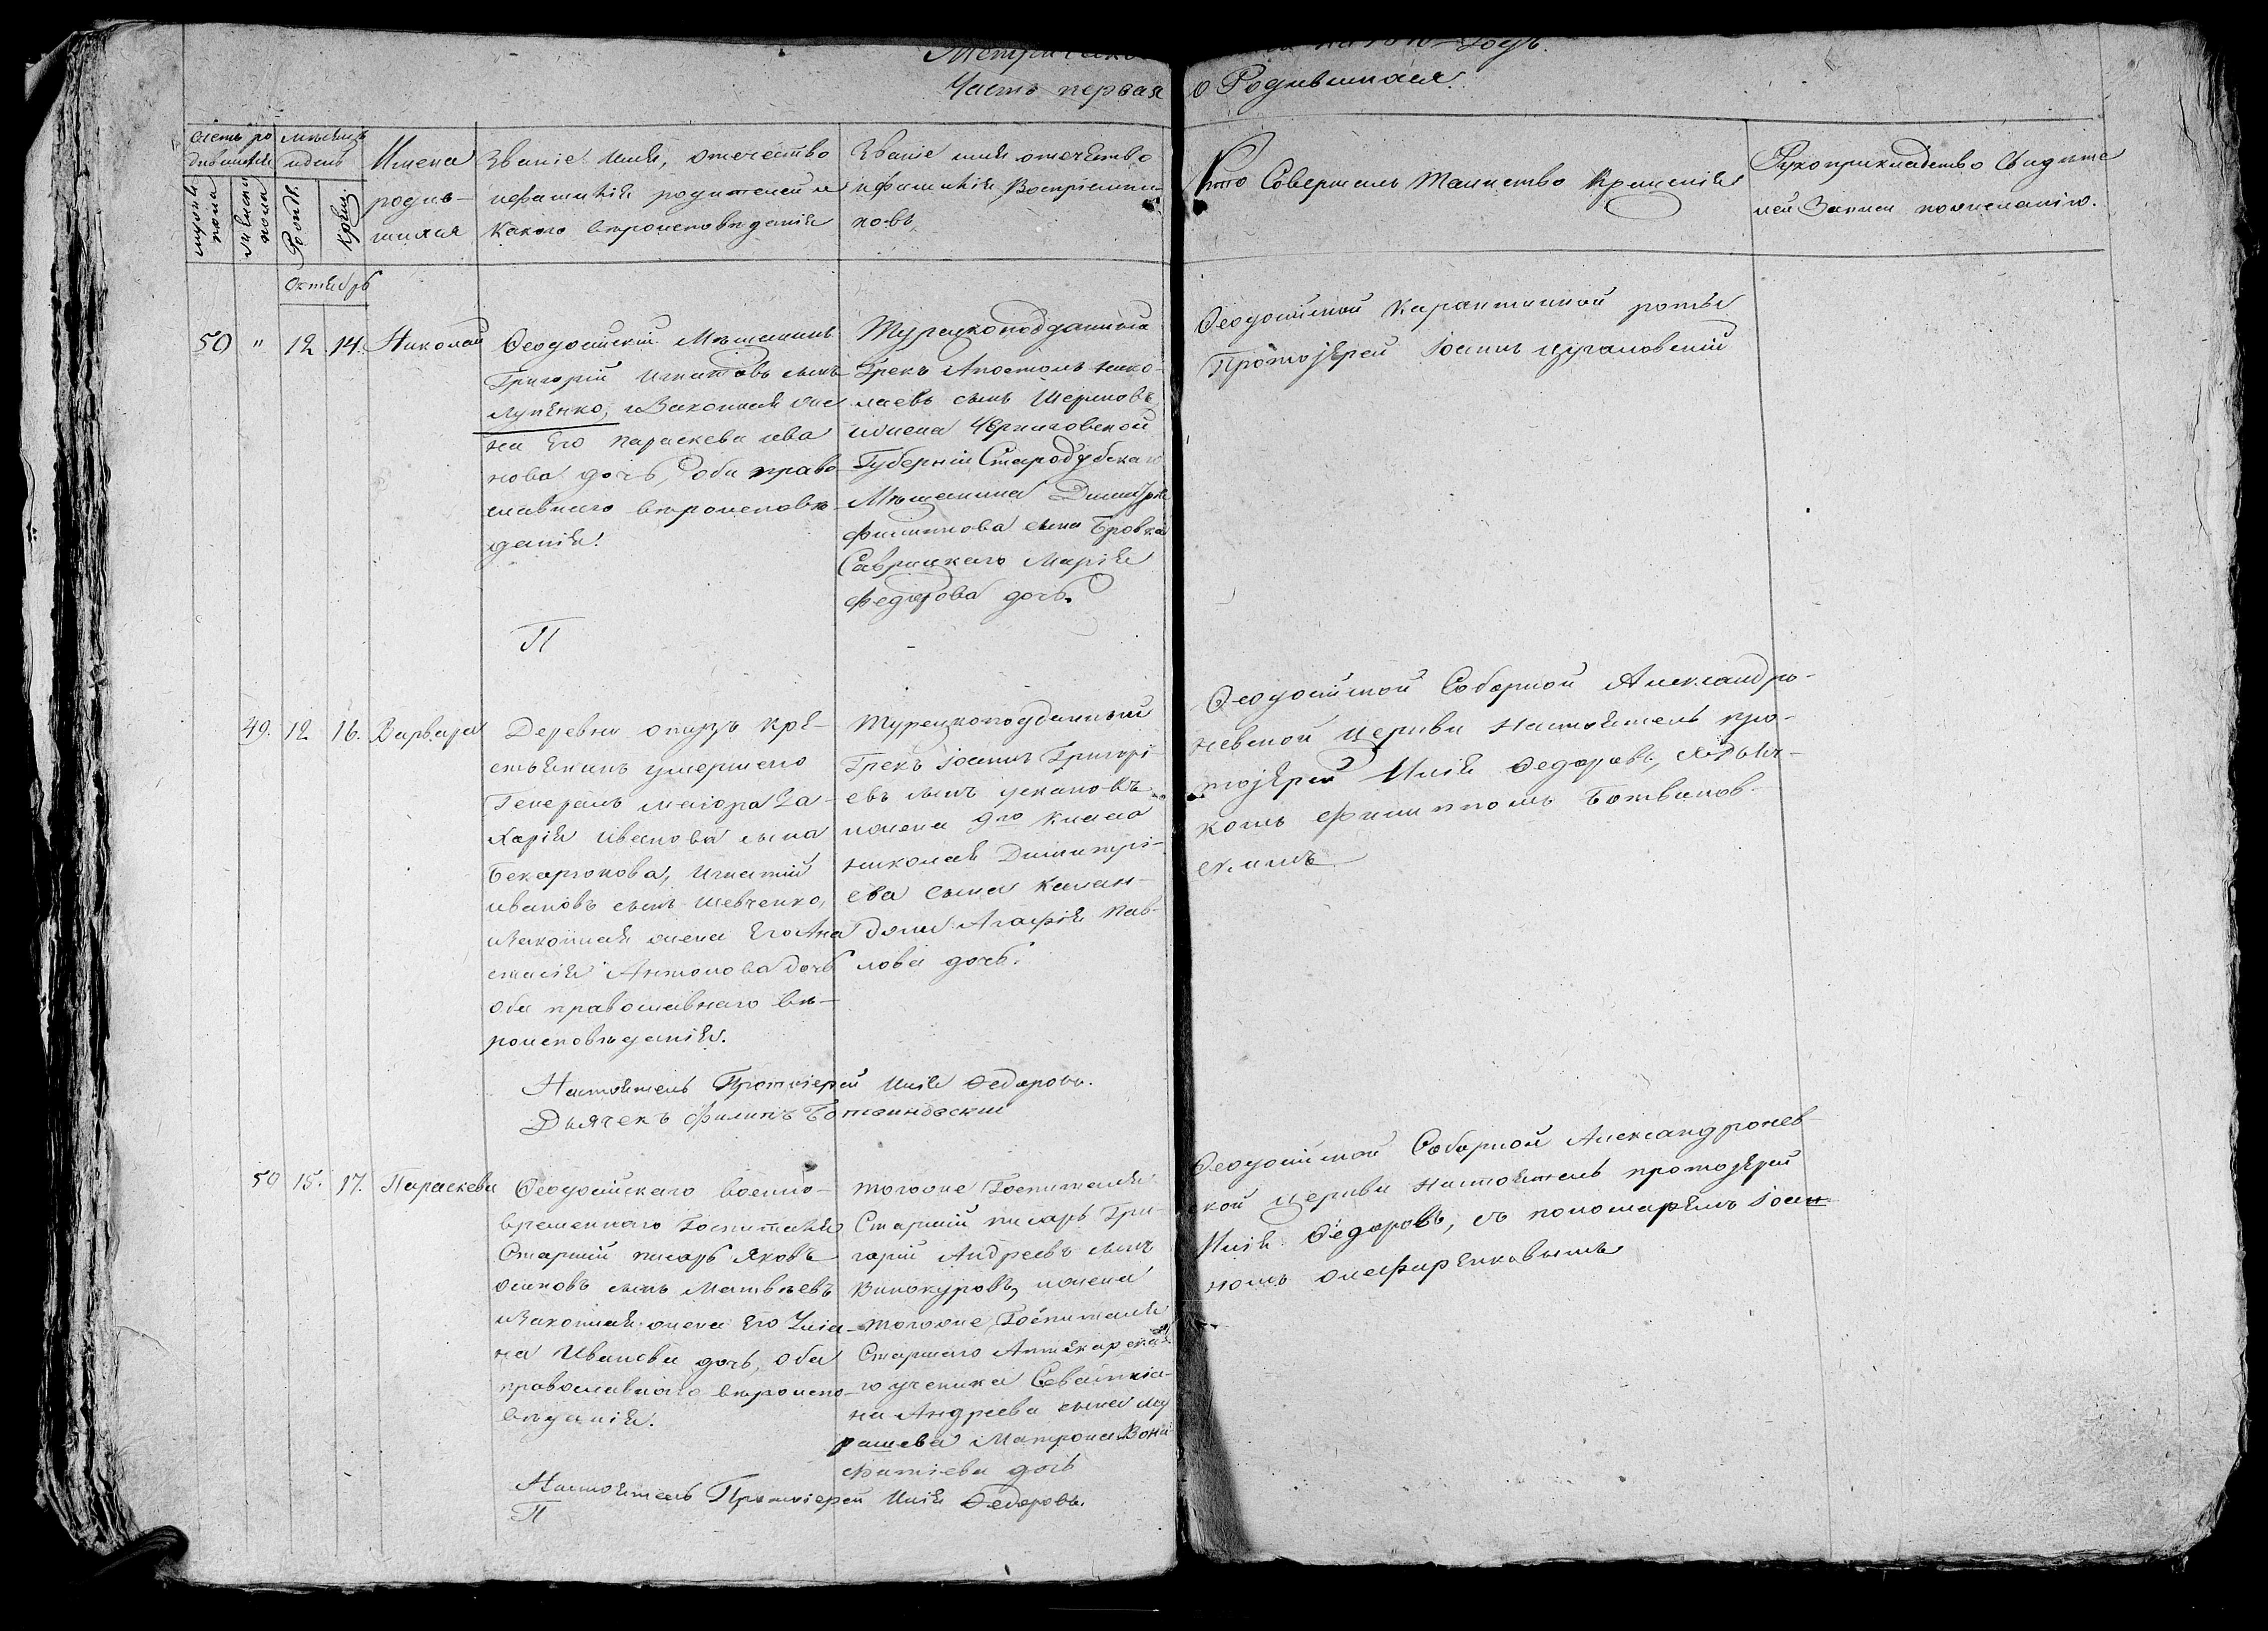 Часть первая о Родившихся.
Счетъ ро
дившихся
мужеска
пола
женска
пола
Месяцъ
и день
Рожд.
Крещ.
Имена
родив-
шихся
Званіе Имя, отечество
и фамилія родителей и
какого вѣроисповѣданія
Званіе имя отечество
и фамилія Воспріемни-
ковъ
Кто Совершалъ Таинство Крещенія
Рукоприкладство свидѣте
лей Записи по желанію.
Октябрь
50 " 12 14. Николай
Феодосійскій Мѣщанинъ
Григорій Игнатовъ сынъ
Лупенко, и Законная же
на Его Параскева Ива
нова дочь, оба право
славнаго вѣроисповѣ
данія.
П
Турецкоподданный
Грекъ Апостолъ Нико-
лаевъ сынъ
и жена Черниговской
Губерніи Стародубскаго
Мѣщанина Димитрія
Филипова сына Бровка
Саврицкаго Марія
Федорова дочь.
Феодосійской Карантинной роты
Протоіерей Іоаннъ
49. 12 16. Варвара
Деревни опукъ Кре-
стьянинъ умершаго
Генералъ маіора За-
харія Иванова сына
Бекарюкова, Игнатій
Ивановъ сынъ Шевченко,
и Законная жена Его Ана
стасія Антонова дочь
оба православнаго вѣ-
роисповѣданія.
Турецкоподданный
Грекъ Іоаннъ Григорі-
евъ сынъ
и жена 9го Класа
Николая Димитрі-
ева сына Калан-
доли Агафія Пав-
лова дочь.
Феодосійской Соборной Александро-
невской Церкви Настоятель про-
тоіерей Илія Федоровъ, съ дьяч-
комъ Филиппомъ Ботвинов-
скимъ
Настоятель Протоіерей Илія Федоровъ.
Дьячекъ Филипъ Ботвиновскій
50 15. 17. Параскева
Феодосійскаго военно-
временнаго Госпиталя
Старшій писарь Яковъ
Осиповъ сынъ Матвѣевъ
и Законная жена Его Улія-
на Иванова дочь, оба
православнаго вѣроиспо-
вѣданія.
тогоже Госпиталя
Старшій писарь Гри-
горій Андреевъ сынъ
Винокуровъ, и жена
тогоже Госпиталя
Старшаго Аптекарска-
го ученика Севастія-
на Андреева сына Му
рашева Матрона Вони
фатіева дочь
Феодосійской Соборной Александронев-
кой церкви Настоятель протоіерей
Илія Федоровъ, съ пономаремъ Іоан-
номъ Олефиренковымъ
Настоятель Протоіерей Илія Федоровъ.
П